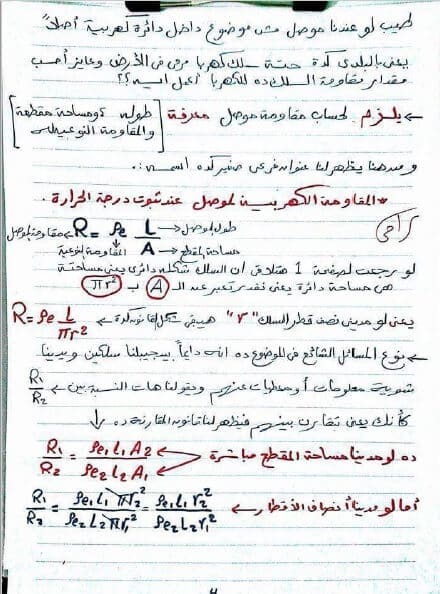 طيب لو عندنا موصل مش موضوع داخل دائرة كهربية أصلاً
يعنى بالبلدى كدة حتة سلك كهربا مرمى فى الأرض وعايز أحسب
مقدار مقاومة السلك ده للكهربا أعمل ايه؟؟
← يلزم لحساب مقاومة موصل معرفة [طوله ومساحة مقطعة والمقاومة النوعية]
ومن هنا يظهر لنا عنوان فرعى صغير كده اسمه :.
* المقاومة الكهربية لموصل عند ثبوت درجة الحرارة.
مقاومة الموصل ← R = ρe L/A → طول الموصل
→ مساحة المقطع
المقاومة النوعية
لو رجعت لصفحة 1 هتلاقى ان السلك شكله دائرى يعنى مساحتة
هى مساحة دائرة يعنى نقدر نعبر عن الـ A بـ πr²
يعنى لو مدينى نصف قطر السلك "r" هيبقى شكل القانون كدة ← R = ρe L/πr²
← نوع المسائل الشائع فى الموضوع ده انه دايماً بيجيبلنا سلكين ويدينا
شوية معلومات أو معطيات عنهم ويقولنا هات النسبة بين ← R₁/R₂
كأنك يعنى تقارن بينهم فيظهر لنا قانون المقارنة ده
↓
R₁/R₂ = ρe₁ L₁ A₂ / ρe₂ L₂ A₁ ← ده لو مدينا مساحة المقطع مباشرة
R₁/R₂ = ρe₁ L₁ πr₂² / ρe₂ L₂ πr₁² = ρe₁ L₁ r₂² / ρe₂ L₂ r₁² ← أما لو مدينا أنصاف الأقطار